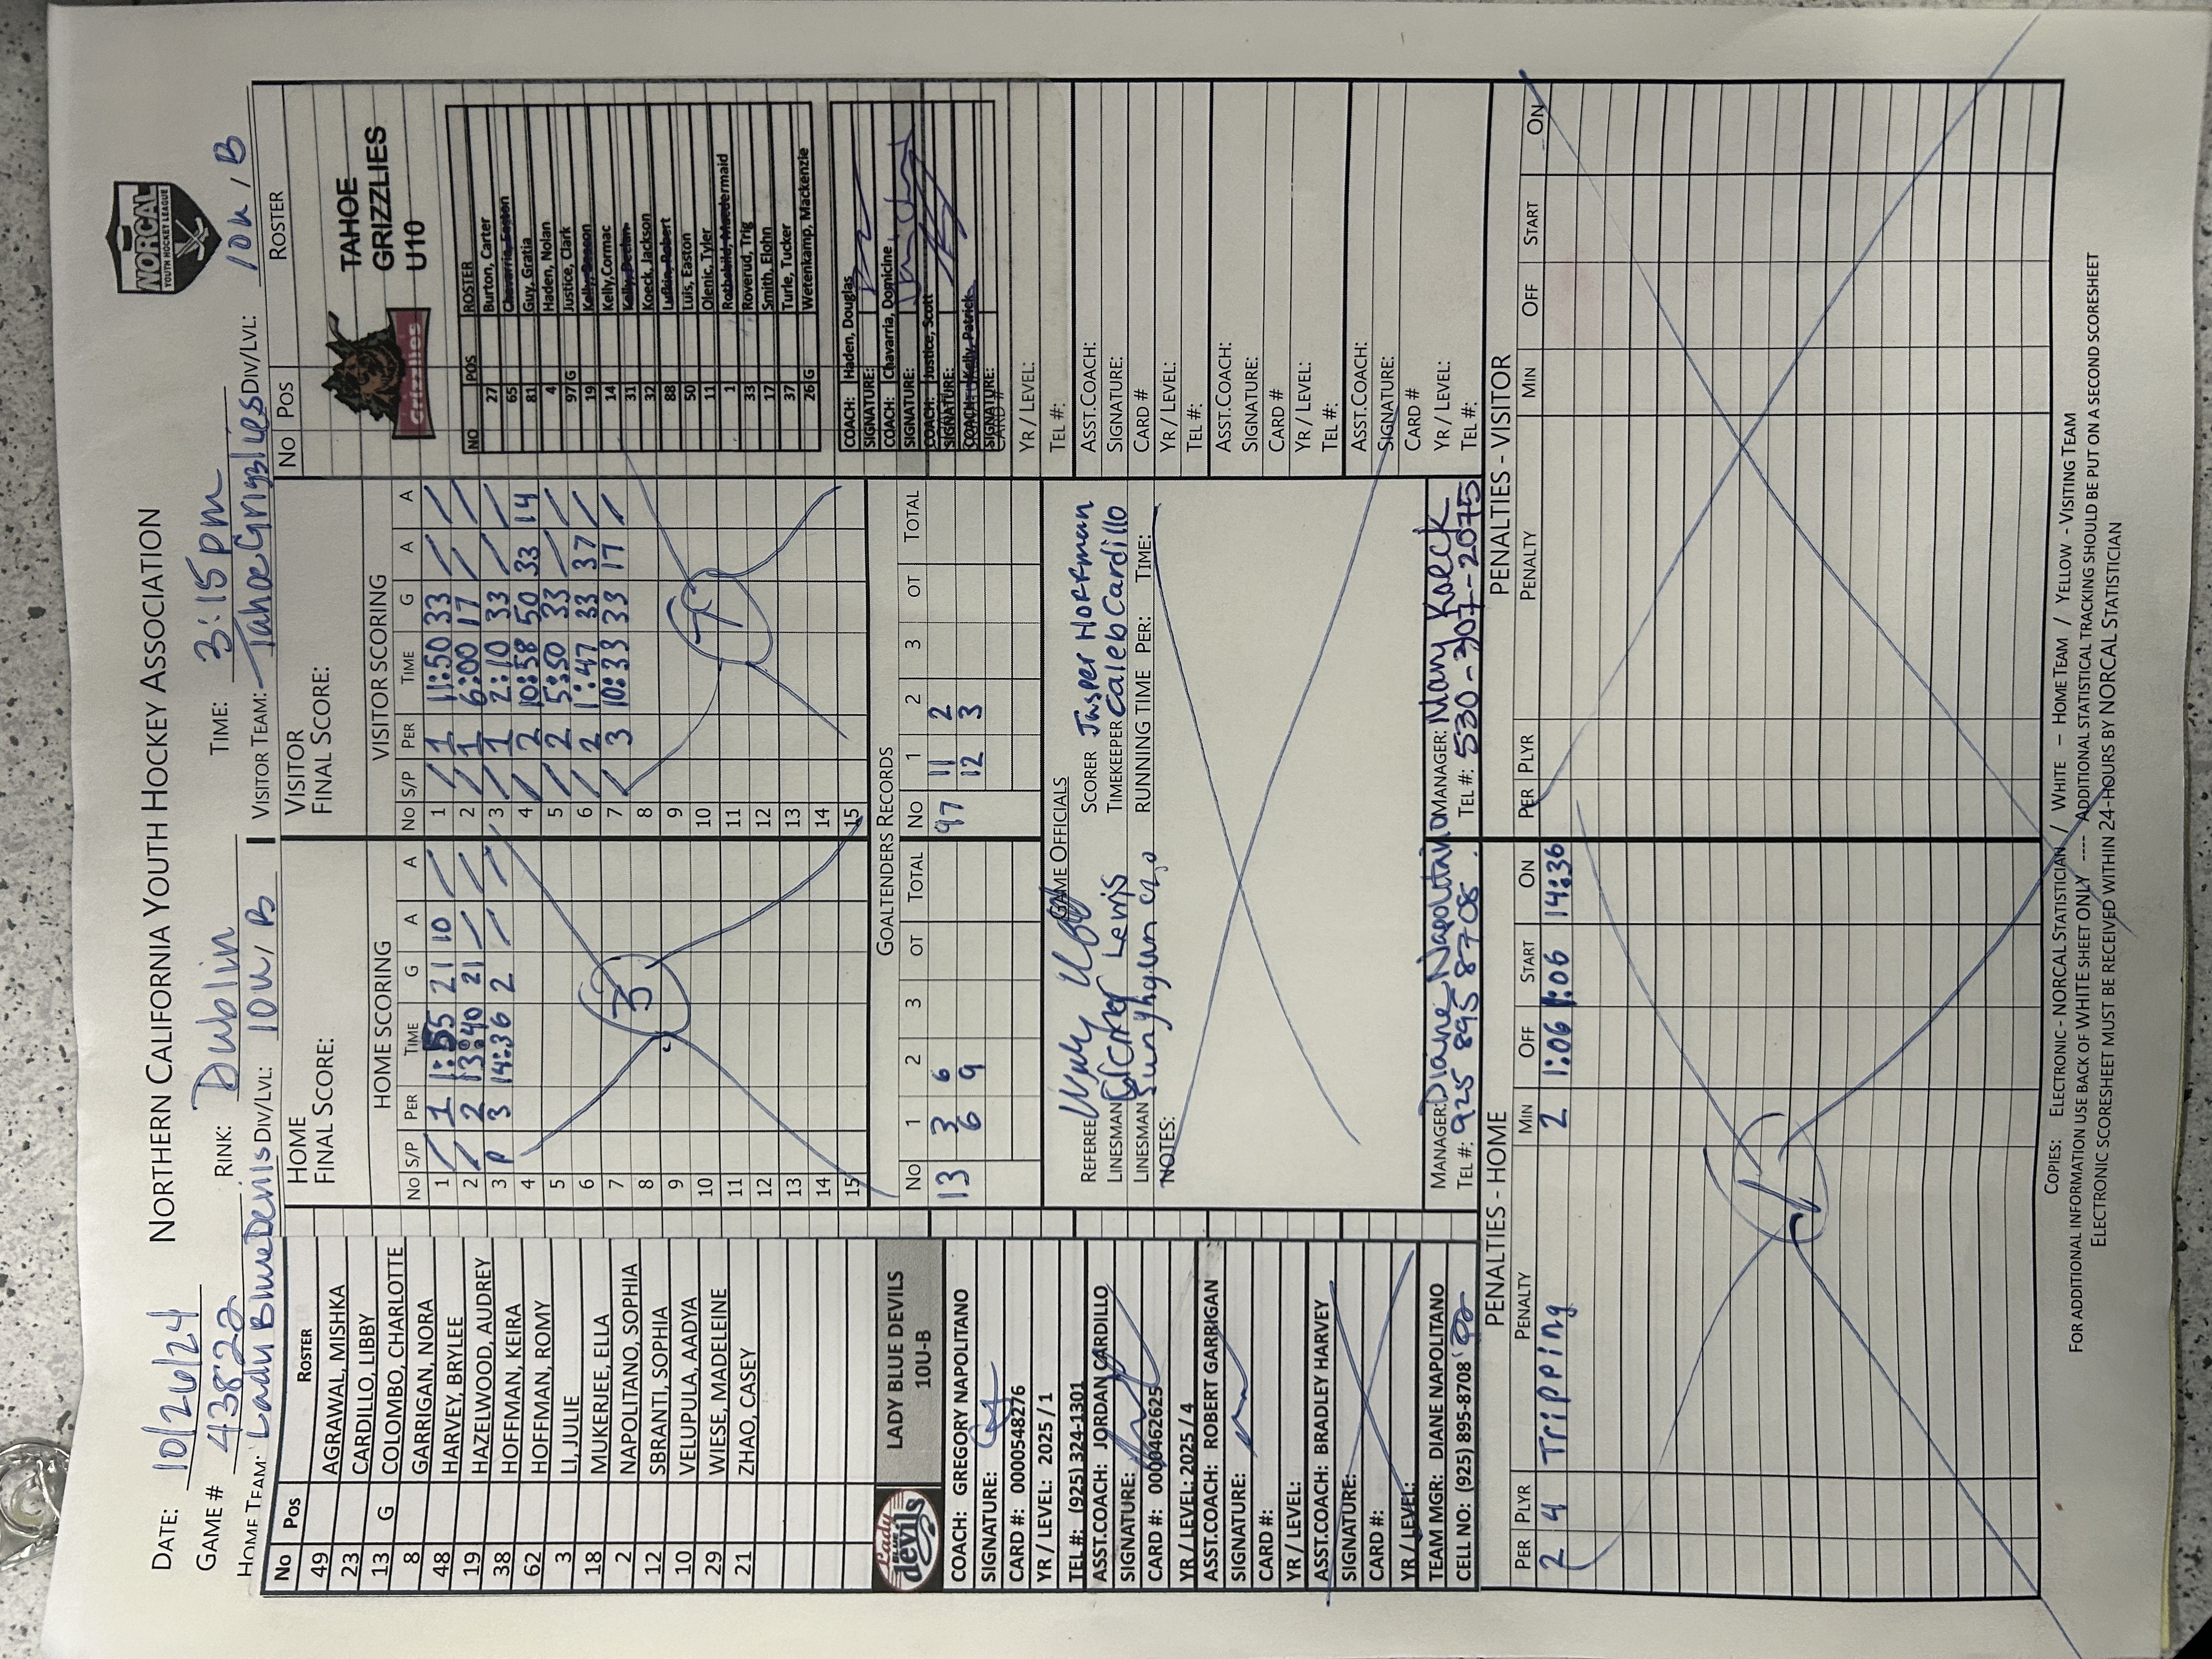 NORTHERN CALIFORNIA YOUTH HOCKEY ASSOCIATION
NORCAL
YOUTH HOCKEY LEAGUE
DATE: 10/26/24 RINK: Dublin TIME: 3:15 pm
GAME # 43822
HOME TEAM: Lady Blue Devils DIV/LVL: 10u/B VISITOR TEAM: Tahoe Grizzlies DIV/LVL: 10u/B
No Pos ROSTER
49 AGRAWAL, MISHKA
23 CARDILLO, LIBBY
13 G COLOMBO, CHARLOTTE
8 GARRIGAN, NORA
48 HARVEY, BRYLEE
19 HAZELWOOD, AUDREY
38 HOFFMAN, KEIRA
62 HOFFMAN, ROMY
3 LI, JULIE
18 MUKERJEE, ELLA
2 NAPOLITANO, SOPHIA
12 SBRANTI, SOPHIA
10 VELUPULA, AADYA
29 WIESE, MADELEINE
21 ZHAO, CASEY
Lady
BLUE
devils
LADY BLUE DEVILS
10U-B
COACH: GREGORY NAPOLITANO
SIGNATURE:
CARD #: 0000548276
YR / LEVEL: 2025 / 1
TEL #: (925) 324-1301
ASST.COACH: JORDAN CARDILLO
SIGNATURE:
CARD #: 0000462625
YR / LEVEL: 2025 / 4
ASST.COACH: ROBERT GARRIGAN
SIGNATURE:
CARD #:
YR / LEVEL:
ASST.COACH: BRADLEY HARVEY
SIGNATURE:
CARD #:
YR / LEVEL:
TEAM MGR: DIANE NAPOLITANO
CELL NO: (925) 895-8708
HOME
FINAL SCORE:
HOME SCORING
No S/P PER TIME G A A
1 / 1 1:55 21 10 /
2 / 2 13:40 21 / /
3 P 3 14:36 2 / /
4
5
6
7
8
9
10
11
12
13
14
15
3
VISITOR
FINAL SCORE:
VISITOR SCORING
No S/P PER TIME G A A
1 / 1 11:50 33 / /
2 / 1 6:00 17 / /
3 / 1 2:10 33 / /
4 / 2 10:58 50 33 14
5 / 2 5:50 33 / /
6 / 2 1:47 33 37 /
7 / 3 10:33 33 17 /
8
9
10
11
12
13
14
15
7
GOALTENDERS RECORDS
No 1 2 3 OT TOTAL No 1 2 3 OT TOTAL
13 3 6 97 11 2
6 9 12 3
GAME OFFICIALS
REFEREE SCORER Jasper Hoffman
LINESMAN Lewis TIMEKEEPER Caleb Cardillo
LINESMAN RUNNING TIME PER: TIME:
NOTES:
MANAGER: Diane Napolitano MANAGER: Mary Koeck
TEL #: 925 895 8708 TEL #: 530-307-2075
No Pos ROSTER
Grizzlies
TAHOE
GRIZZLIES
U10
NO POS ROSTER
27 Burton, Carter
65 Chavarria, Easton
81 Guy, Gratia
4 Haden, Nolan
97 G Justice, Clark
19 Kelly, Deacon
14 Kelly,Cormac
31 Kelly, Declan
32 Koeck, Jackson
88 Lufkin, Robert
50 Luis, Easton
11 Olenic, Tyler
1 Rothchild, Macdermaid
33 Roverud, Trig
17 Smith, Elohn
37 Turle, Tucker
26 G Wetenkamp, Mackenzie
COACH: Haden, Douglas
SIGNATURE:
COACH: Chavarria, Domicine
SIGNATURE:
COACH: Justice, Scott
SIGNATURE:
COACH: Kelly, Patrick
SIGNATURE:
CARD #
YR / LEVEL:
TEL #:
ASST.COACH:
SIGNATURE:
CARD #
YR / LEVEL:
TEL #:
ASST.COACH:
SIGNATURE:
CARD #
YR / LEVEL:
TEL #:
ASST.COACH:
SIGNATURE:
CARD #
YR / LEVEL:
TEL #:
PENALTIES - HOME
PER PLYR PENALTY MIN OFF START ON
2 4 Tripping 2 1:06 1:06 14:36
1
PENALTIES - VISITOR
PER PLYR PENALTY MIN OFF START ON
COPIES: ELECTRONIC - NORCAL STATISTICIAN / WHITE – HOME TEAM / YELLOW - VISITING TEAM
FOR ADDITIONAL INFORMATION USE BACK OF WHITE SHEET ONLY ---- ADDITIONAL STATISTICAL TRACKING SHOULD BE PUT ON A SECOND SCORESHEET
ELECTRONIC SCORESHEET MUST BE RECEIVED WITHIN 24-HOURS BY NORCAL STATISTICIAN